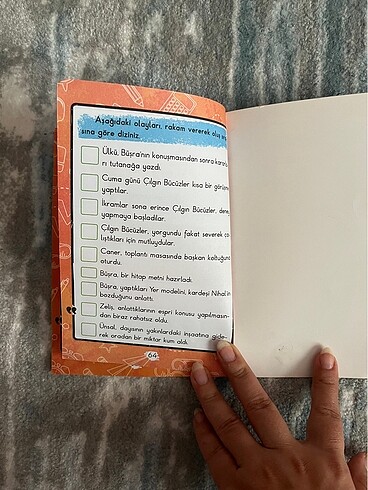 Aşağıdaki olayları, rakam vererek oluş
sına göre diziniz.
Ülkü, Büşra'nın konuşmasından sonra
rı tutanağa yazdı.
Cuma günü Çılgın Bücüzler kısa bir
yaptılar.
İkramlar sona erince Çılgın Bücüzler,
yapmaya başladılar.
Çılgın Bücüzler, yorgundu fakat severek
lıştıkları için mutluydular.
Caner, toplantı masasında başkan koltuğuna
oturdu.
Büşra, bir hitap metni hazırladı.
Büşra, yaptıkları Yer modelini, kardeşi Nihal'in
bozduğunu anlattı.
Zeliş, anlattıklarının espri konusu yapılmasın-
dan biraz rahatsız oldu.
Ünsal, dayısının yakınlardaki inşaatına gide-
rek oradan bir miktar kum aldı.
64